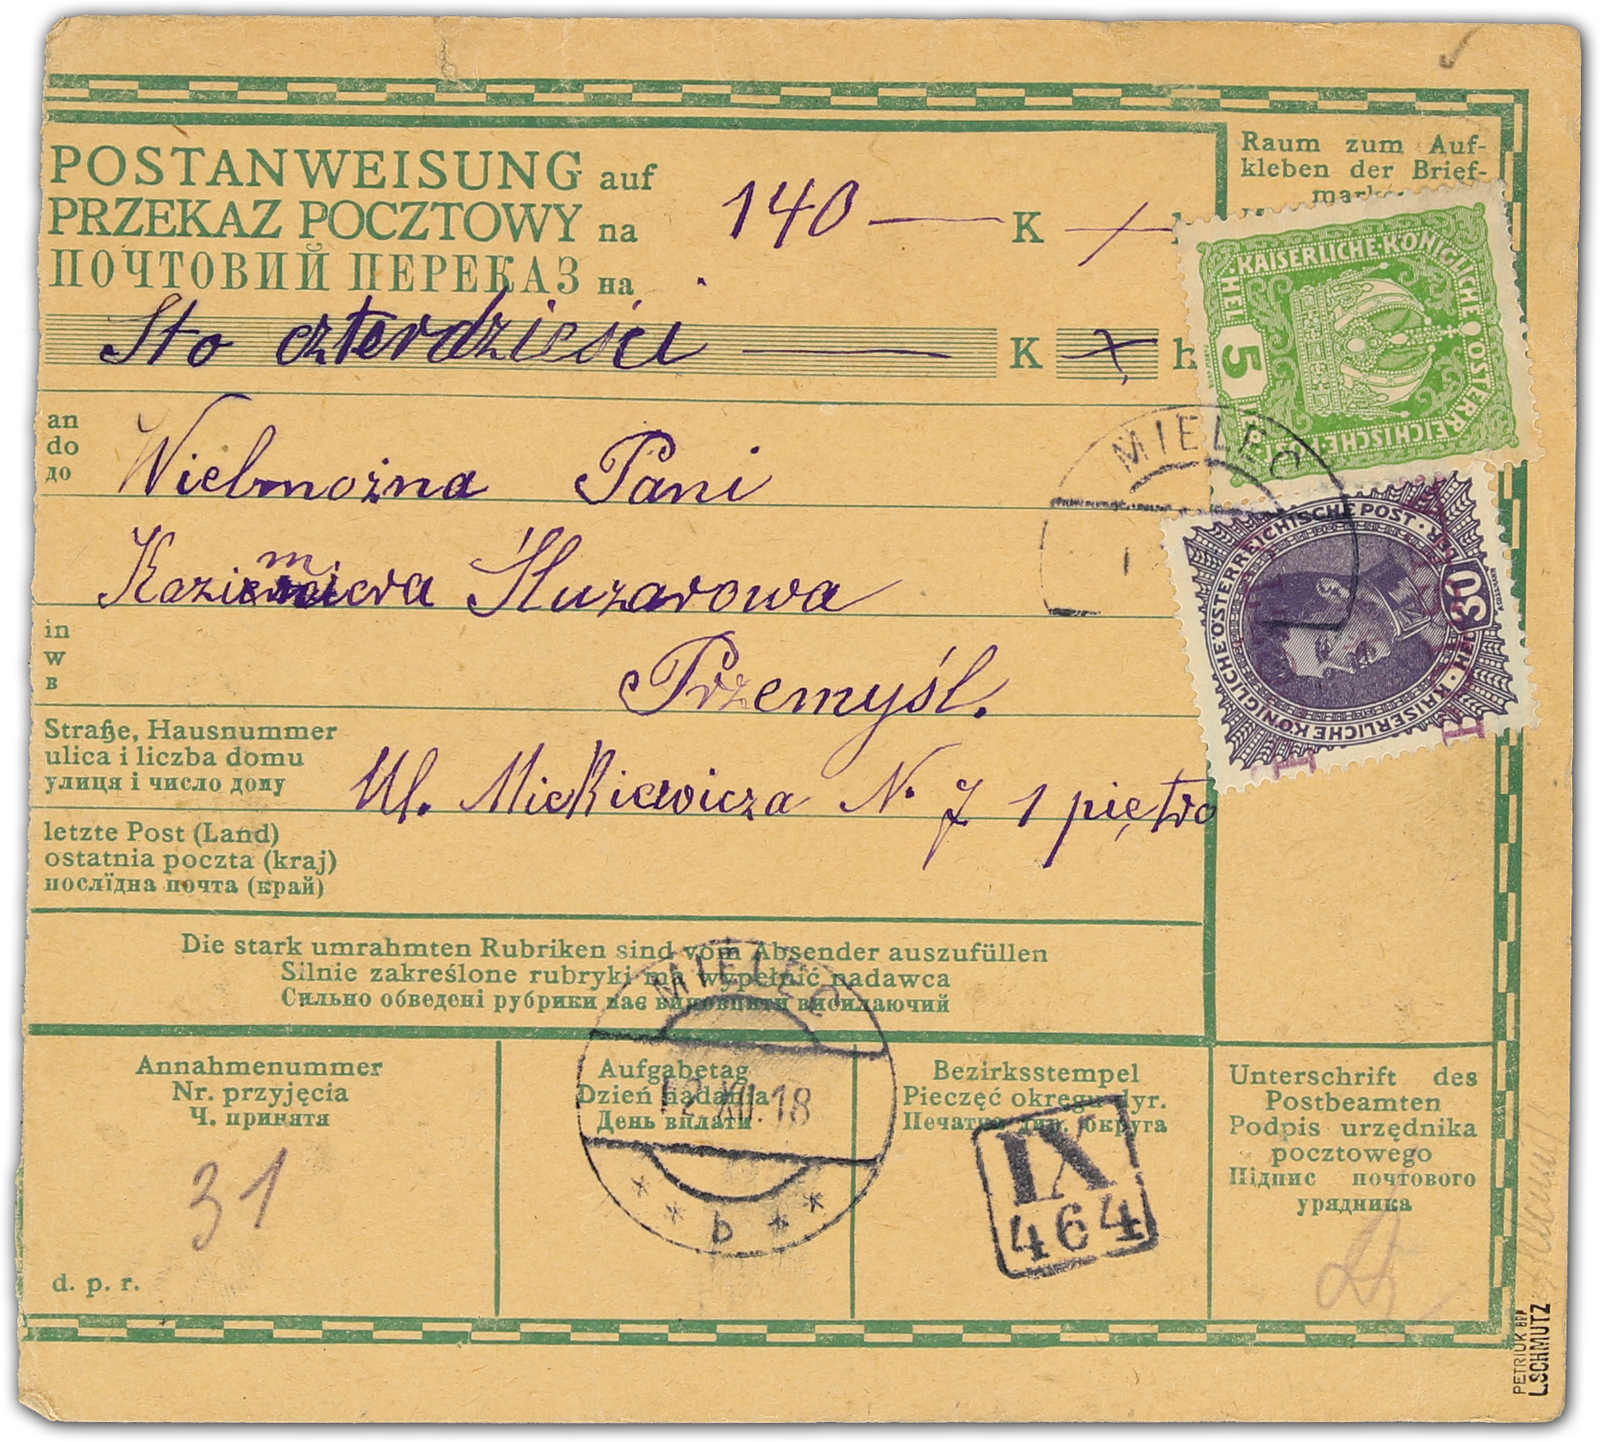 POSTANWEISUNG auf 140 — K
PRZEKAZ POCZTOWY na
ПОЧТОВИЙ ПЕРЕКАЗ на
Sto czterdzieści — K h
Raum zum Auf-
kleben der Brief-
KAISERLICHE·KÖNIGLICHE ÖSTERREICHISCHE·POST
5 HEL
an
do
до
Wielmożna Pani
Kazimiera Śluzarowa
in
w
в
Przemyśl.
MIELEC
KAISERLICHE KÖNIGLICHE·ÖSTERREICHISCHE POST
30
Straße, Hausnummer
ulica i liczba domu
улиця і число дому
Ul. Mickiewicza N. 7 1 piętro
letzte Post (Land)
ostatnia poczta (kraj)
послїдна почта (край)
Die stark umrahmten Rubriken sind vom Absender auszufüllen
Silnie zakreślone rubryki ma wypełnić nadawca
Сильно обведені рубрики має виповнити висилаючий
Annahmenummer
Nr. przyjęcia
Ч. принятя
31
d. p. r.
Aufgabetag
Dzień nadania
День вплати
MIELEC
12 XII.18
b
Bezirksstempel
Pieczęć okręgu dyr.
Печатка дир. округа
IX
464
Unterschrift des
Postbeamten
Podpis urzędnika
pocztowego
Підпис почтового
урядника
PETRIUK BPP
L.SCHMUTZ